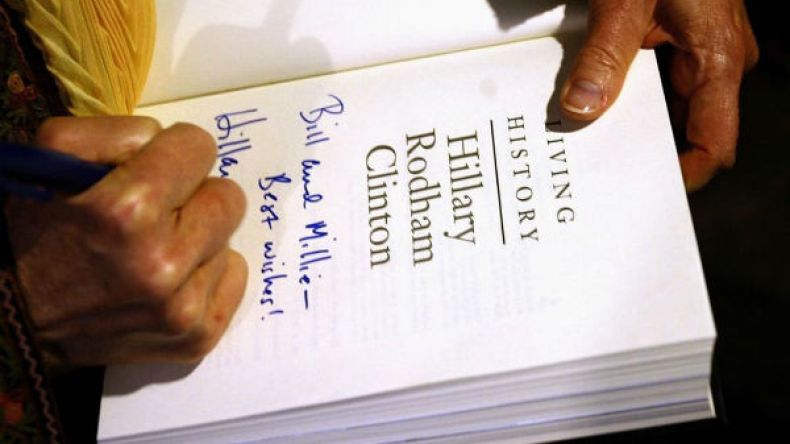 LIVING
HISTORY
Hillary
Rodham
Clinton
Bill and Millie—
Best wishes!
Hilla